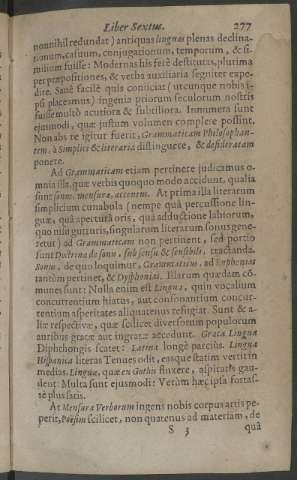 Liber Sextus. 277
nonnihil redundat) antiquas linguas plenas declina-
tionum, casuum, conjugationum, temporum, & si-
milium fuisse: Modernas his ferè destitutas, plurima
per præpositiones, & verba auxiliaria segniter expe-
dire. Sanè facilè quis conjiciat (utcunque nobis i-
psi placeamus) ingenia priorum seculorum nostris
fuisse multò acutiora & subtiliora. Innumera sunt
ejusmodi, quæ justum volumen complere possint.
Non abs re igitur fuerit, Grammaticam Philosophan-
tem, à Simplici & literaria distinguere, & desideratam
ponere.
Ad Grammaticam etiam pertinere judicamus o-
mnia illa, quæ verbis quoquo modo accidunt, qualia
sunt sonus, mensura, accentus. At prima illa literarum
simplicium cunabula (nempe quâ percussione lin-
guæ, quâ aperturâ oris, quâ adductione labiorum,
quo nisu gutturis, singularum literarum sonus gene-
retur) ad Grammaticam non pertinent, sed portio
sunt Doctrinæ de sonis, sub sensu & sensibili, tractanda.
Sonus, de quo loquimur, Grammaticus, ad Euphonias
tantùm pertinet, & Dysphonias. Illarum quædam com-
munes sunt: Nulla enim est Lingua, quin vocalium
concurrentium hiatus, aut consonantium concur-
rentium asperitates aliquatenus refugiat. Sunt & a-
liæ respectivæ, quæ scilicet diversorum populorum
auribus gratæ aut ingratæ accedunt. Græca Lingua
Diphthongis scatet: Latina longè parciùs. Lingua
Hispanica literas Tenues odit, easque statim vertit in
medias. Linguæ, quæ ex Gothis fluxere, aspiratis gau-
dent: Multa sunt ejusmodi: Verùm hæc ipsa fortas-
sè plus satis.
At Mensura Verborum ingens nobis corpus artis pe-
perit, Poësim scilicet, non quatenus ad materiam, de
S 3 quâ